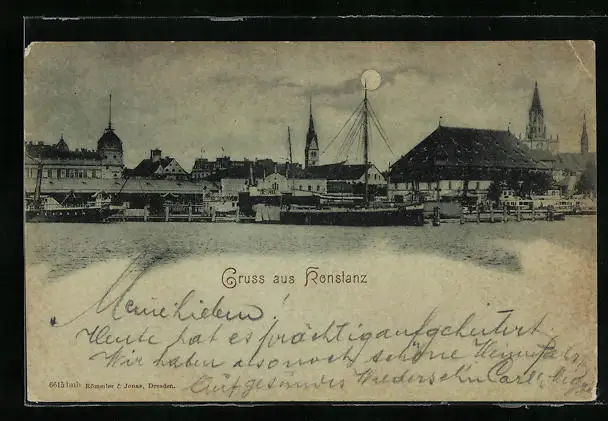 Gruss aus Konstanz
Meine Lieben!
Heute hat es prächtig aufgeheitert
Wir haben also noch schöne Heimfahrt
Auf gesundes Wiedersehn Carl
6615 Römmler & Jonas, Dresden.